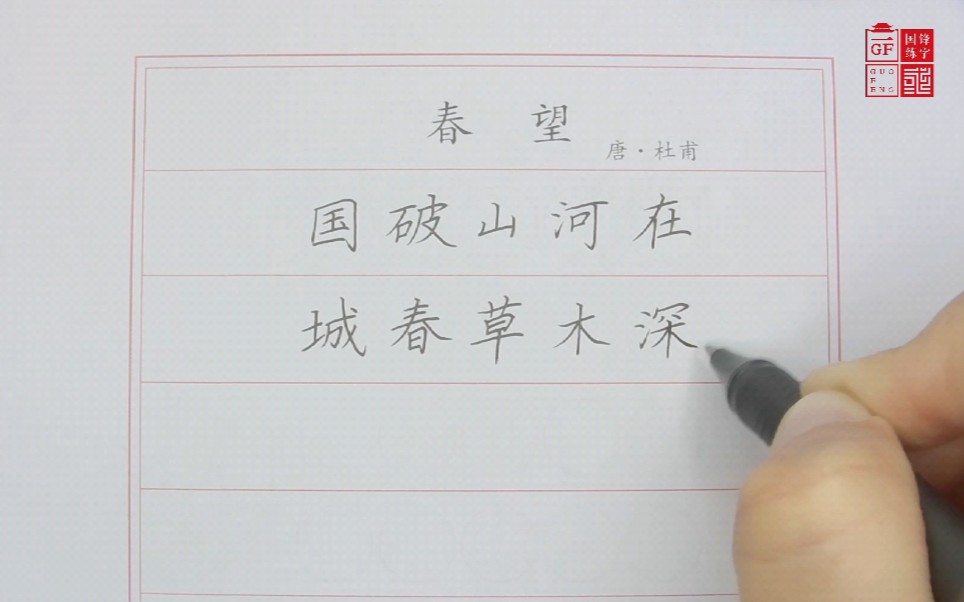 春望
唐·杜甫
国破山河在
城春草木深
GF
国锋
练字
GUO
F
ENG